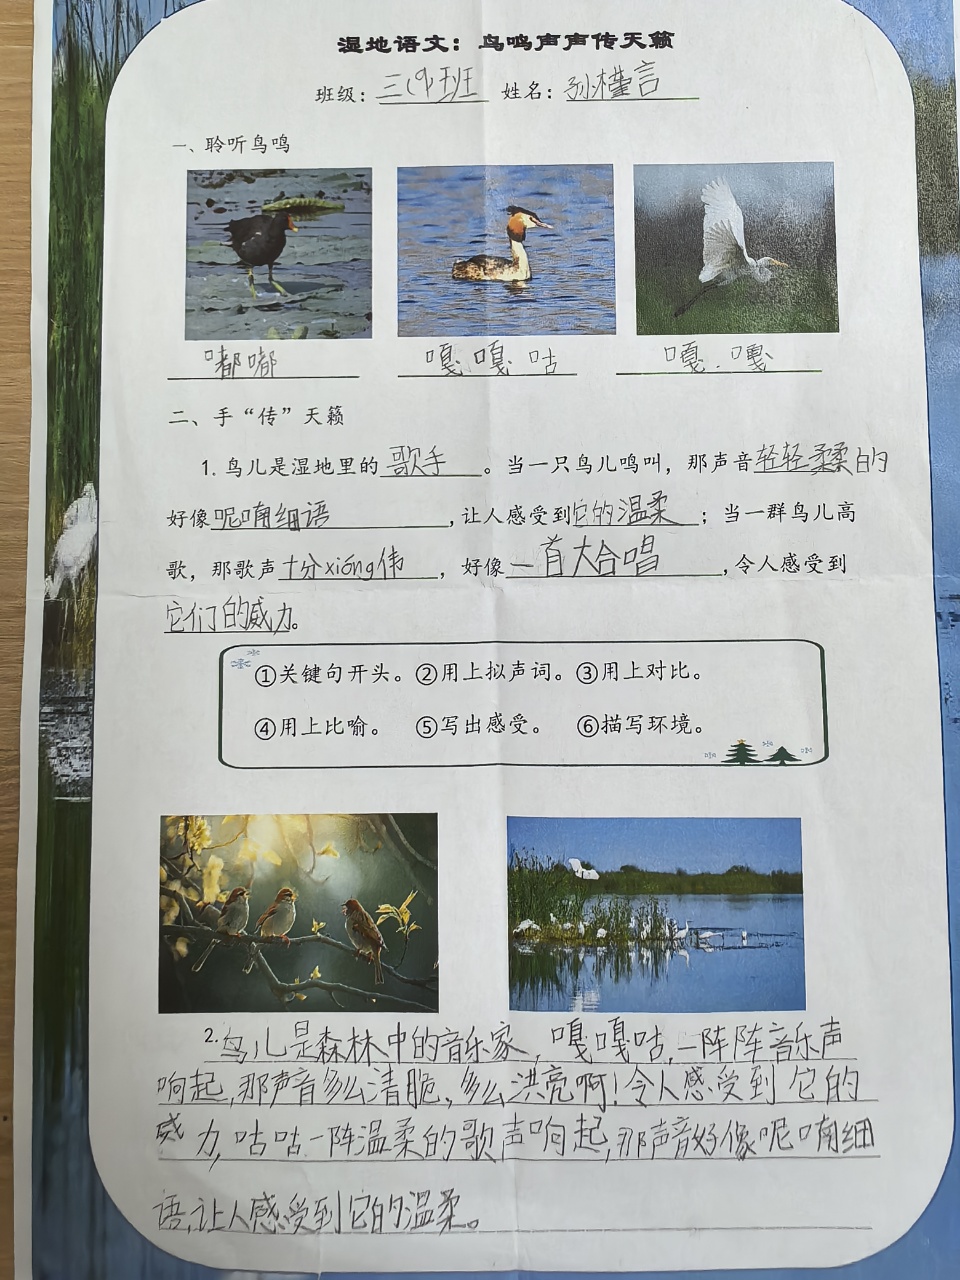 湿地语文：鸟鸣声声传天籁
班级：三(9)班 姓名：孙槿言
一、聆听鸟鸣
嘟嘟 嘎.嘎.咕 嘎.嘎
二、手“传”天籁
1.鸟儿是湿地里的歌手。当一只鸟儿鸣叫，那声音轻轻柔柔的
好像呢喃细语，让人感受到它的温柔；当一群鸟儿高
歌，那歌声十分xióng伟，好像一首大合唱，令人感受到
它们的威力。
①关键句开头。②用上拟声词。③用上对比。
④用上比喻。 ⑤写出感受。 ⑥描写环境。
2.鸟儿是森林中的音乐家，嘎嘎咕，一阵阵音乐声
响起，那声音多么清脆，多么洪亮啊！令人感受到它的
威力，咕咕一阵温柔的歌声响起，那声音好像呢喃细
语，让人感受到它的温柔。